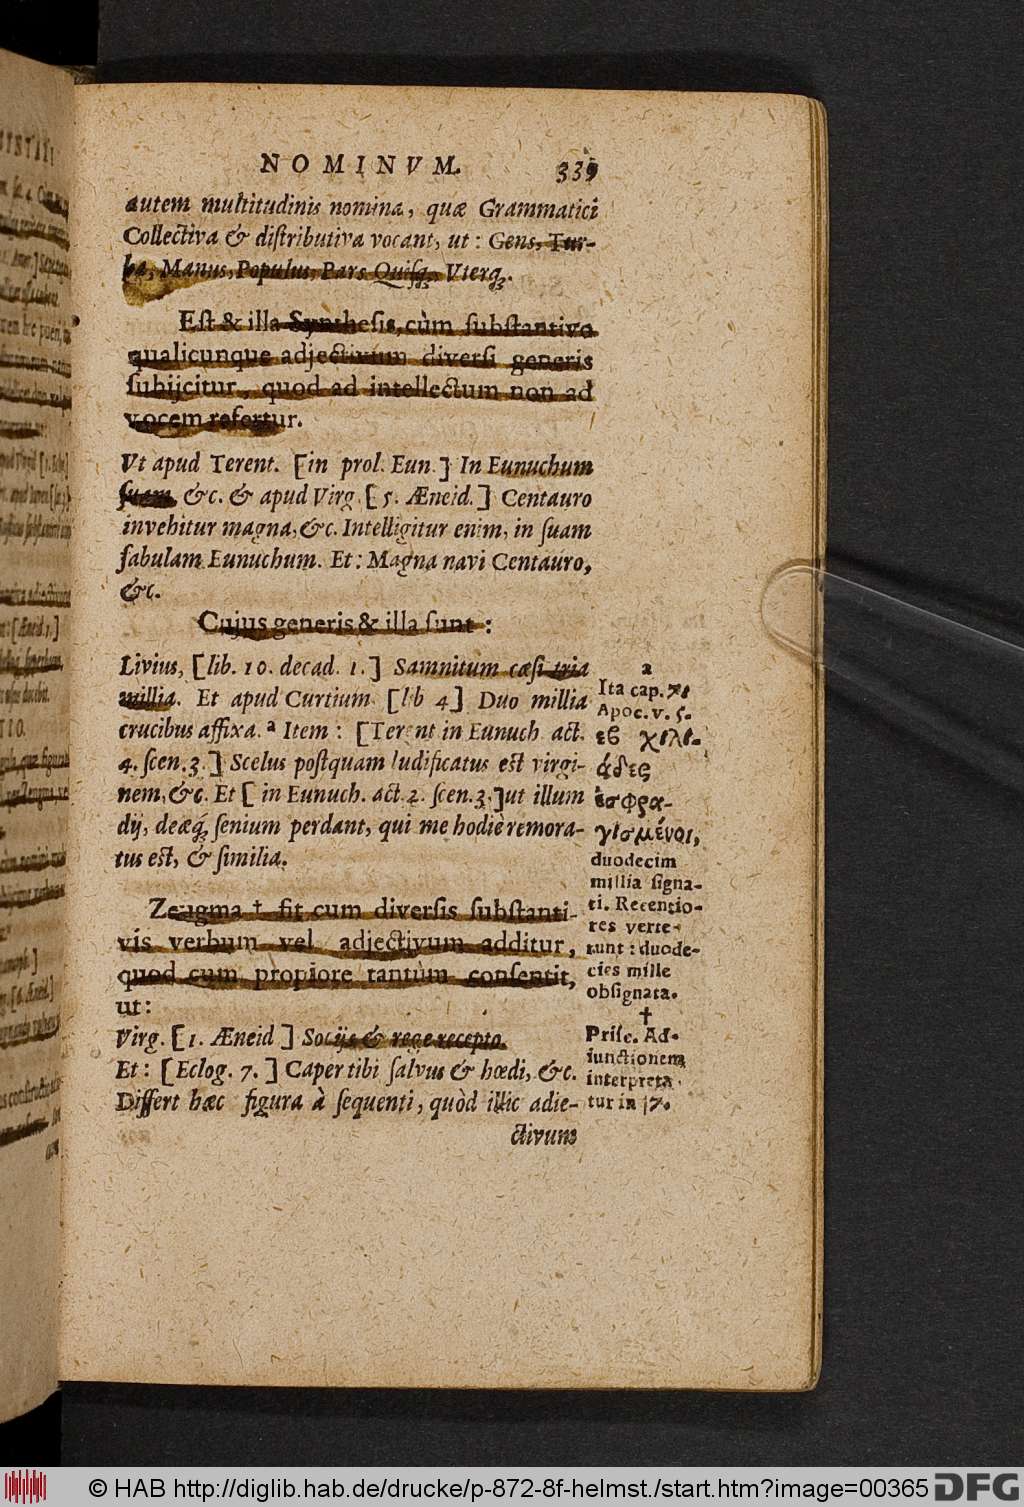 NOMINVM. 339
autem multitudinis nomina, quæ Grammatici
Collectiva & distributiva vocant, ut: Gens, Tur-
ba, Manus, Populus, Pars Quisq;, Vterq;.
Est & illa Synthesis, cùm substantivo
qualicunque adjectivum diversi generis
subijcitur, quod ad intellectum non ad
vocem refertur.
Vt apud Terent. [in prol. Eun.] In Eunuchum
suam, &c. & apud Virg. [5. Æneid.] Centauro
invehitur magna, &c. Intelligitur enim, in suam
fabulam Eunuchum. Et: Magna navi Centauro,
&c.
Cujus generis & illa sunt:
Livius, [lib. 10. decad. 1.] Samnitum cæsi tria
millia. Et apud Curtium. [lib 4] Duo millia
crucibus affixa. a Item: [Terent in Eunuch act.
4. scen. 3.] Scelus postquam ludificatus est virgi-
nem, &c. Et [in Eunuch. act. 2. scen. 3.] ut illum
dij, deæq; senium perdant, qui me hodiè remora-
tus est, & similia.
Zeugma † fit cum diversis substanti-
vis verbum vel adjectivum additur,
quod cum propiore tantùm consentit,
ut:
Virg. [1. Æneid] Socijs & rege recepto.
Et: [Eclog. 7.] Caper tibi salvus & hœdi, &c.
Differt hæc figura à sequenti, quòd illic adie-
ctivum
a
Ita cap. 7.
Apoc. v. 5.
ιβ χιλι-
άδες
ἐσφρα-
γισμένοι,
duodecim
millia signa-
ti. Recentio-
res verte-
runt: duode-
cies mille
obsignata.
†
Prisc. Ad-
iunctionem
interpreta-
tur in 17.
© HAB http://diglib.hab.de/drucke/p-872-8f-helmst./start.htm?image=00365 DFG